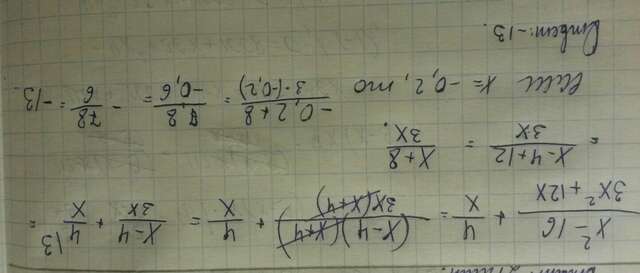 (x²-16)/(3x²+12x) + 4/x = (x-4)(x+4)/(3x(x+4)) + 4/x = (x-4)/(3x) + 4/x =
= (x-4+12)/(3x) = (x+8)/(3x).
Если x = -0,2, то (-0,2+8)/(3·(-0,2)) = 7,8/(-0,6) = -78/6 = -13.
Ответ: -13.